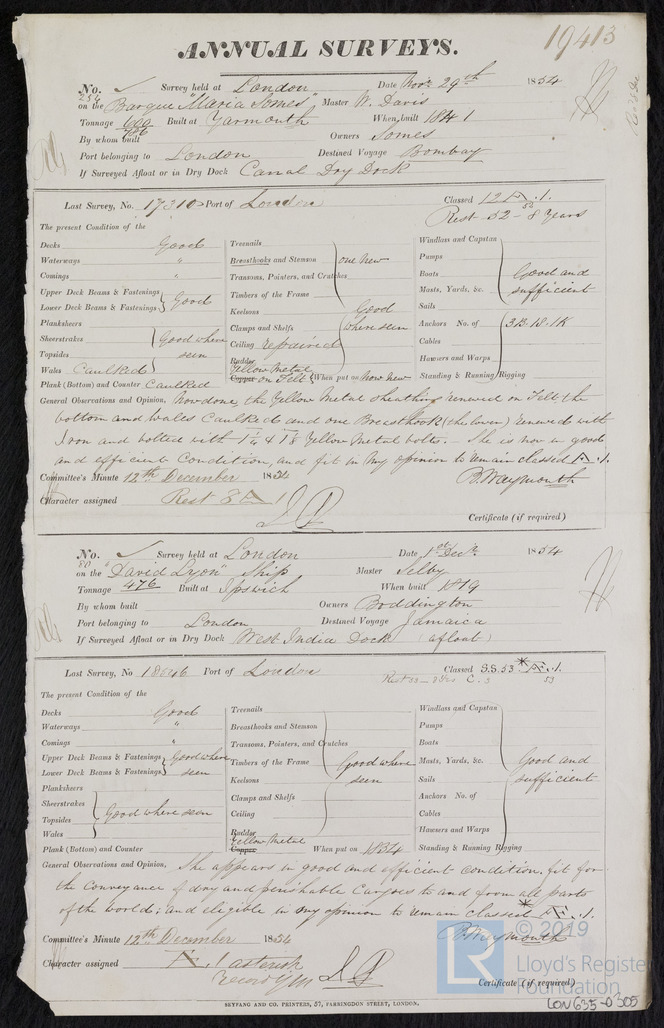 ANNUAL SURVEYS.
19413
No. 254 Survey held at London Date Novr 29th 1854
on the Barque "Maria Somes" Master W. Davis
Tonnage 600 786 Built at Yarmouth When built 1841
By whom built Owners Somes
Port belonging to London Destined Voyage Bombay
If Surveyed Afloat or in Dry Dock Canal Dry Dock
Last Survey, No. 17310 Port of London Classed 12 A.1.
Rest. 52 - 8 Years
The present Condition of the
Decks Good
Waterways "
Comings "
Upper Deck Beams & Fastenings
Lower Deck Beams & Fastenings Good
Planksheers
Sheerstrakes Good where
Topsides seen
Wales Caulked
Plank (Bottom) and Counter Caulked
Treenails
Breasthooks and Stemson one New
Transoms, Pointers, and Crutches
Timbers of the Frame
Keelsons Good
Clamps and Shelfs where seen
Ceiling repaired
Rudder
Yellow Metal
Copper on Felt When put on Now New
Windlass and Capstan
Pumps
Boats Good and
Masts, Yards, &c. sufficient
Sails
Anchors No. of 3B.1S.1K
Cables
Hawsers and Warps
Standing & Running Rigging
General Observations and Opinion, Now done, the Yellow Metal sheathing renewed on Felt the
bottom and Wales Caulked and one Breasthook (the lower) renewed with
Iron and bolted with 1 1/4 & 1 1/8 Yellow Metal bolts. - She is now in good
and efficient Condition, and fit in my opinion to remain classed A.1.
Committee's Minute 12th December 1854 B. Waymouth
Character assigned Rest 8 A 1
Certificate (if required)
No. 80 Survey held at London Date 1st Decr. 1854
on the "David Lyon" Ship Master Selby
Tonnage 476 Built at Ipswich When built 1819
By whom built Owners Boddington
Port belonging to London Destined Voyage Jamaica
If Surveyed Afloat or in Dry Dock West India Dock (afloat)
Last Survey, No Port of London Classed S.S. 53 * Æ.1.
The present Condition of the
Decks Good
Waterways "
Comings "
Upper Deck Beams & Fastenings Good where
Lower Deck Beams & Fastenings seen
Planksheers
Sheerstrakes
Topsides Good where seen
Wales
Plank (Bottom) and Counter
Treenails
Breasthooks and Stemson
Transoms, Pointers, and Crutches
Timbers of the Frame Good where
Keelsons seen
Clamps and Shelfs
Ceiling
Rudder
Yellow Metal
Copper When put on 1834
Windlass and Capstan
Pumps
Boats
Masts, Yards, &c. Good and
Sails sufficient
Anchors No. of
Cables
Hawsers and Warps
Standing & Running Rigging
General Observations and Opinion, She appears in good and efficient condition fit for
the Conveyance of dry and perishable Cargoes to and from all parts
of the world; and eligible in my opinion to remain classed * Æ.1.
Committee's Minute 12th December 1854 B. Waymouth
Character assigned Æ.1 asterisk
Certificate (if required)
SEYFANG AND CO. PRINTERS, 57, FARRINGDON STREET, LONDON.
LON635-0305
LR
© 2019
Lloyd's Register
Foundation